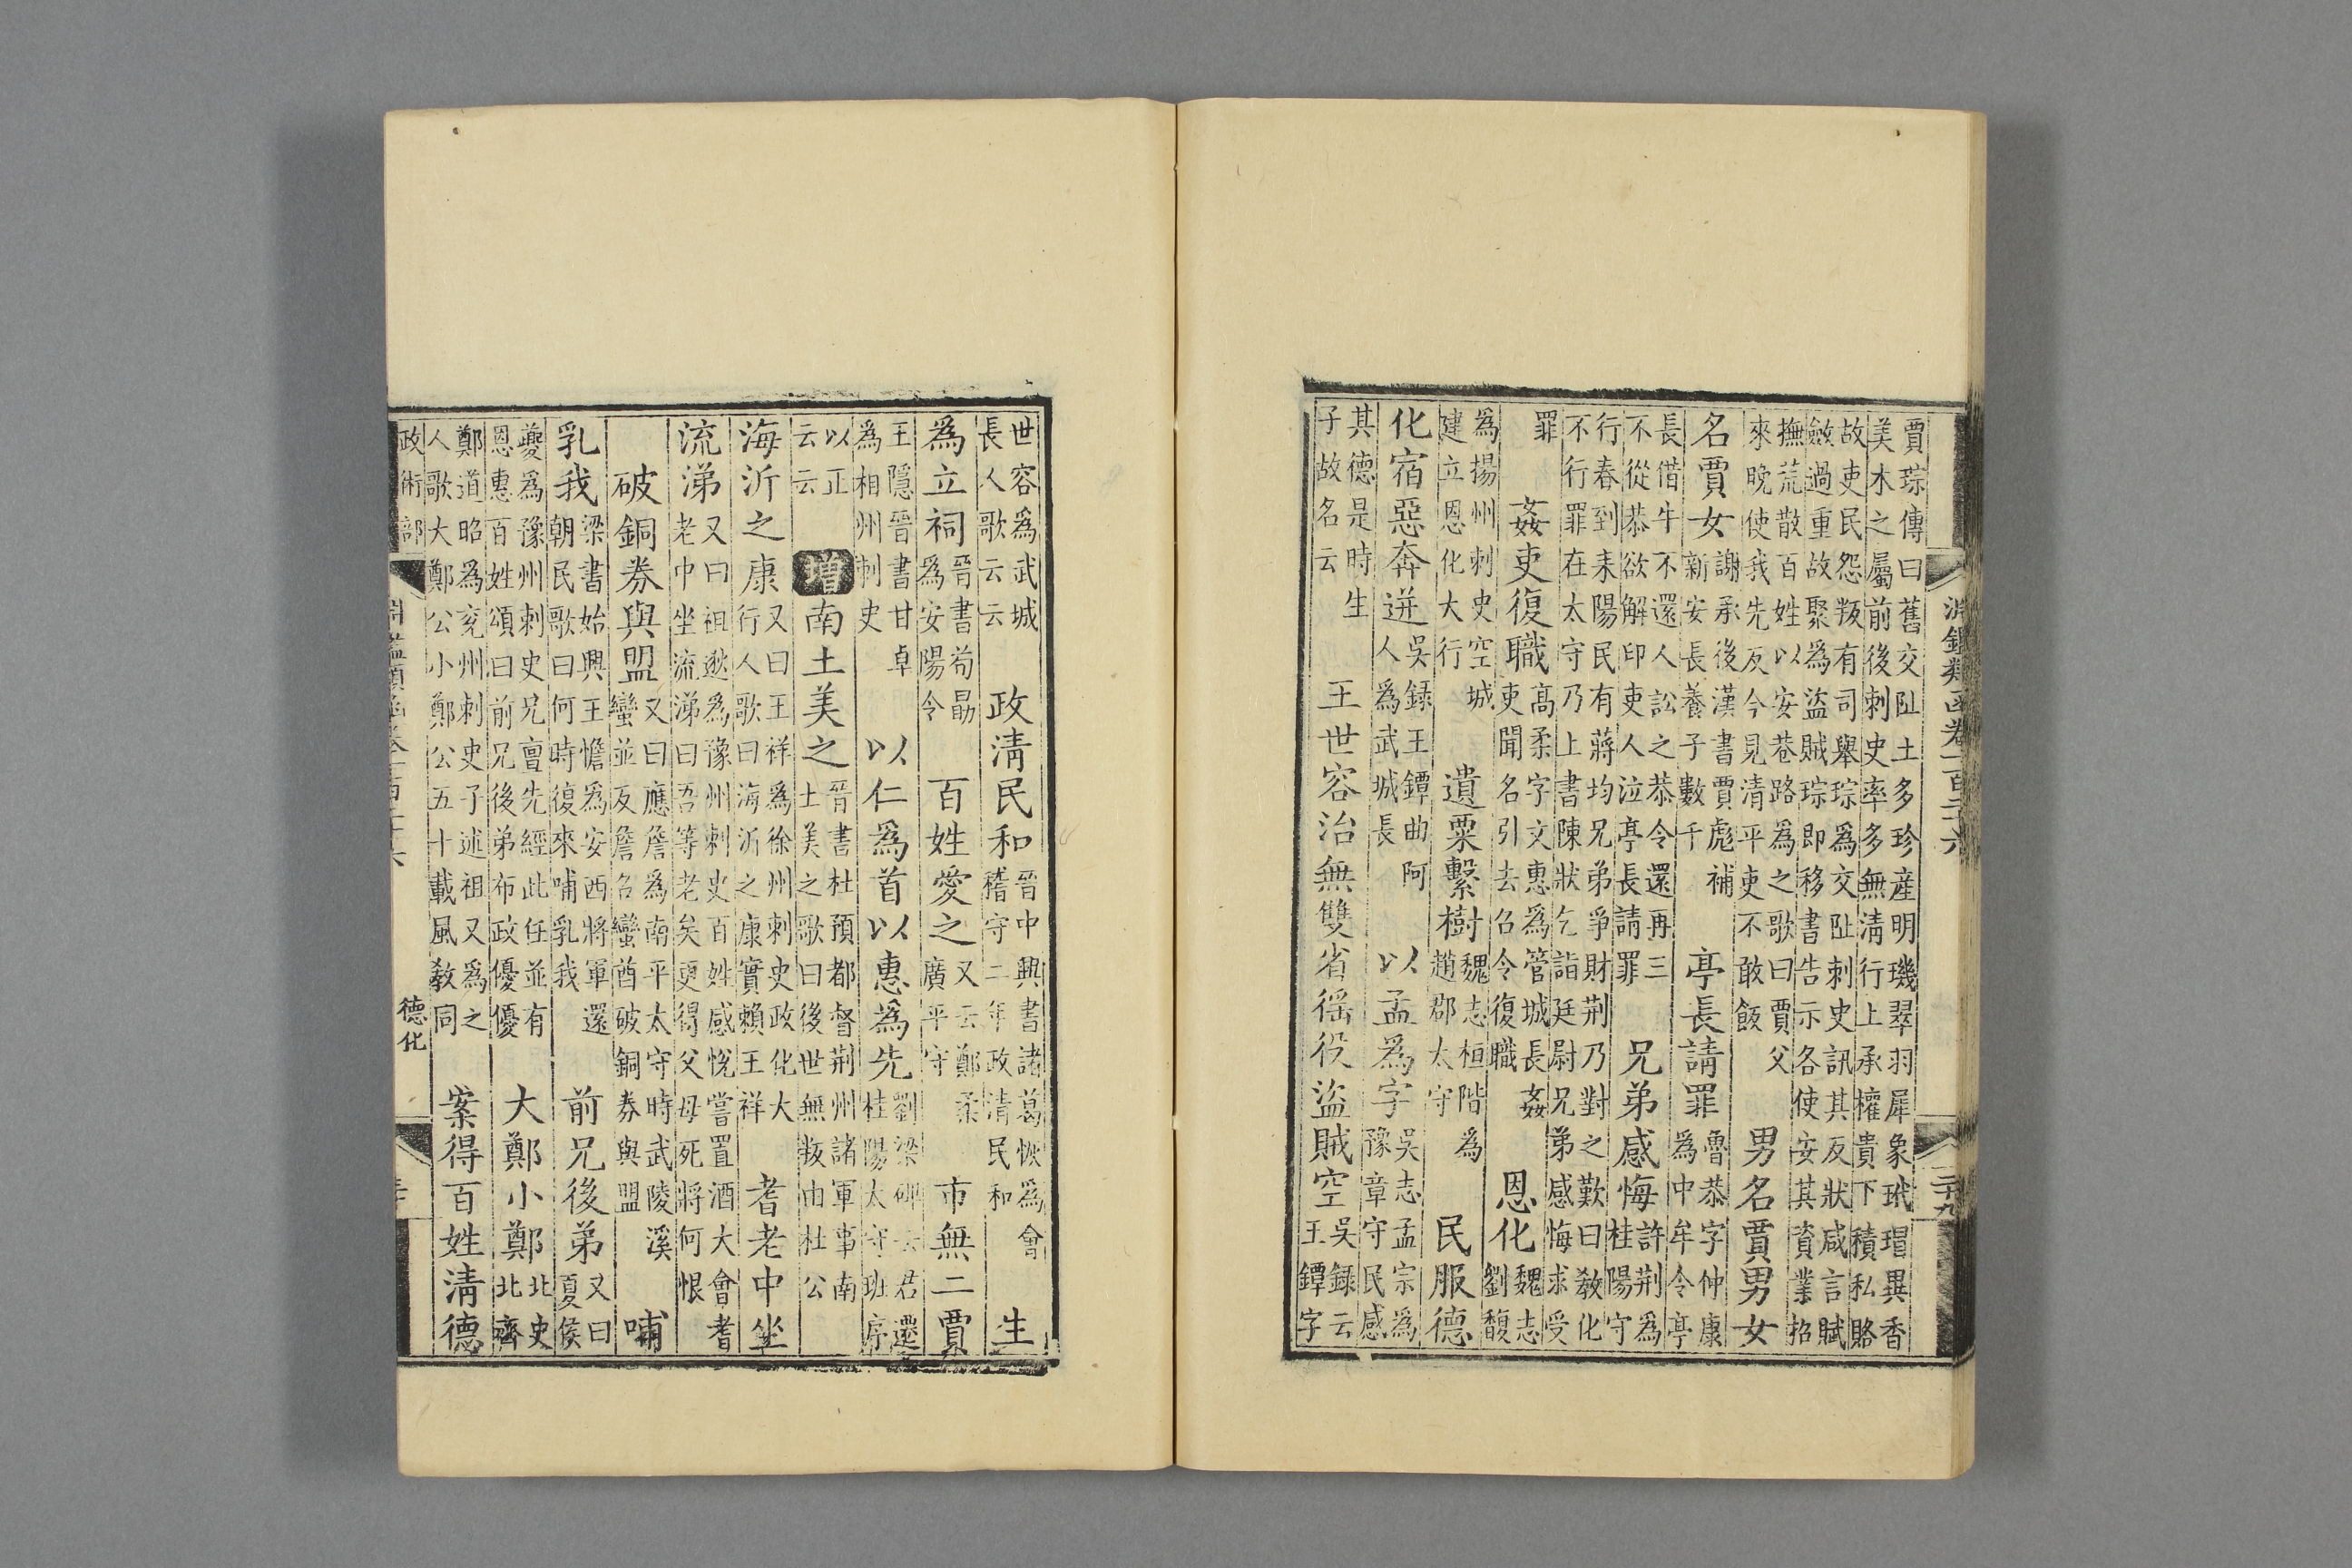 淵鑑類函卷一百二十六 二十九
賈琮傳曰舊交阯土多珍産明璣翠羽犀象玳瑁異香
美木之屬前後刺史率多無清行上承權貴下積私賂
故吏民怨叛有司舉琮爲交阯刺史訊其反狀咸言賦
斂過重故聚爲盜賊琮即移書告示各使安其資業招
撫荒散百姓以安巷路爲之歌曰賈父
來晚使我先反今見清平吏不敢飯
男名賈男女
名賈女
謝承後漢書賈彪補
新安長養子數千
亭長請罪
魯恭字仲康
爲中牟令亭
長借牛不還人訟之恭令還再三
不從恭欲解印吏人泣亭長請罪
兄弟感悔
許荆爲
桂陽守
行春到耒陽民有蔣均兄弟爭財荆乃對之歎曰教化
不行罪在太守乃上書陳狀乞詣廷尉兄弟感悔求受
罪
姦吏復職
高柔字文惠爲管城長姦
吏聞名引去召令復職
恩化
魏志
劉馥
爲揚州刺史空城
建立恩化大行
遺粟繫樹
魏志桓階爲
趙郡太守
民服德
化宿惡奔迸
吳錄王鐔曲阿
人爲武城長
以孟爲字
吳志孟宗爲
豫章守民感
其德是時生
子故名云
王世容治無雙省徭役盜賊空
吳錄云
王鐔字
世容爲武城
長人歌云云
政淸民和
晉中興書諸葛恢爲會
稽守二年政清民和
生
爲立祠
晉書荀勗
爲安陽令
百姓愛之
又云鄭柔
廣平守
市無二賈
王隱晉書甘卓
爲相州刺史
以仁爲首以惠爲先
劉梁碑云君遷
桂陽太守班序
以正
云云
增
南土美之
晉書杜預都督荆州諸軍事南
土美之歌曰後世無叛由杜公
海沂之康
又曰王祥爲徐州刺史政化大
行人歌曰海沂之康實賴王祥
耆老中坐
流涕
又曰祖逖爲豫州刺史百姓感悅嘗置酒大會耆
老中坐流涕曰吾等老矣更得父母死將何恨
破銅券與盟
又曰應詹爲南平太守時武陵溪
蠻並反詹召蠻酋破銅券與盟
哺
乳我
梁書始興王憺爲安西將軍還
朝民歌曰何時復來哺乳我
前兄後弟
又曰
夏侯
夔爲豫州刺史兄亶先經此任並有
恩惠百姓頌曰前兄後弟布政優優
大鄭小鄭
北史
北齊
鄭道昭爲兗州刺史子述祖又爲之
人歌大鄭公小鄭公五十載風敎同
案得百姓淸德
政術部 淵鑑類函卷一百二十六 德化